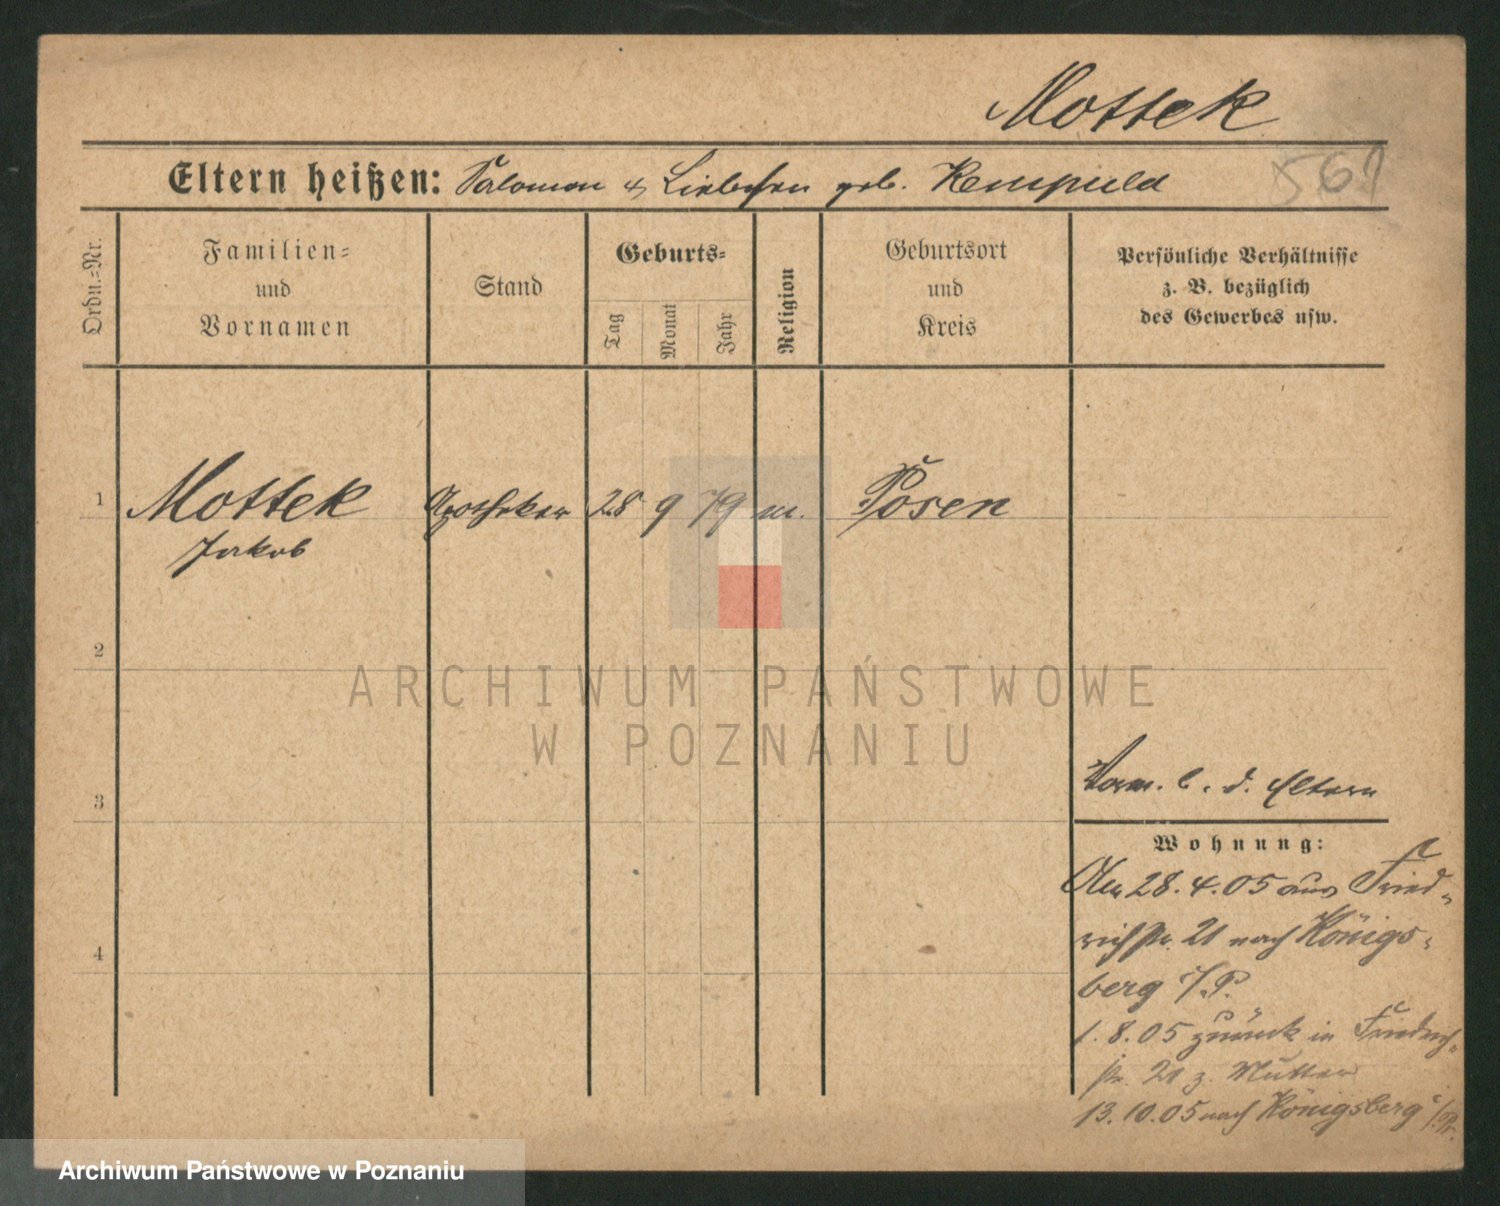 Mottek
Eltern heißen: Salomon & Liebchen geb. Kempuld
561
Ordn.=Nr.
Familien=
und
Vornamen
Stand
Geburts=
Tag
Monat
Jahr
Religion
Geburtsort
und
Kreis
Persönliche Verhältnisse
z. B. bezüglich
des Gewerbes usw.
1 Mottek Apotheker 28 9 79 m. Posen
Jakob
2
ARCHIWUM PAŃSTWOWE
W POZNANIU
3
b. d. Eltern
Wohnung:
Am 28.4.05 aus Fried„
richstr. 21 nach Königs„
berg i/P.
4
1.8.05 zurück in Friedrich„
str. 21 z. Mutter
13.10.05 nach Königsberg i/Pr.
Archiwum Państwowe w Poznaniu